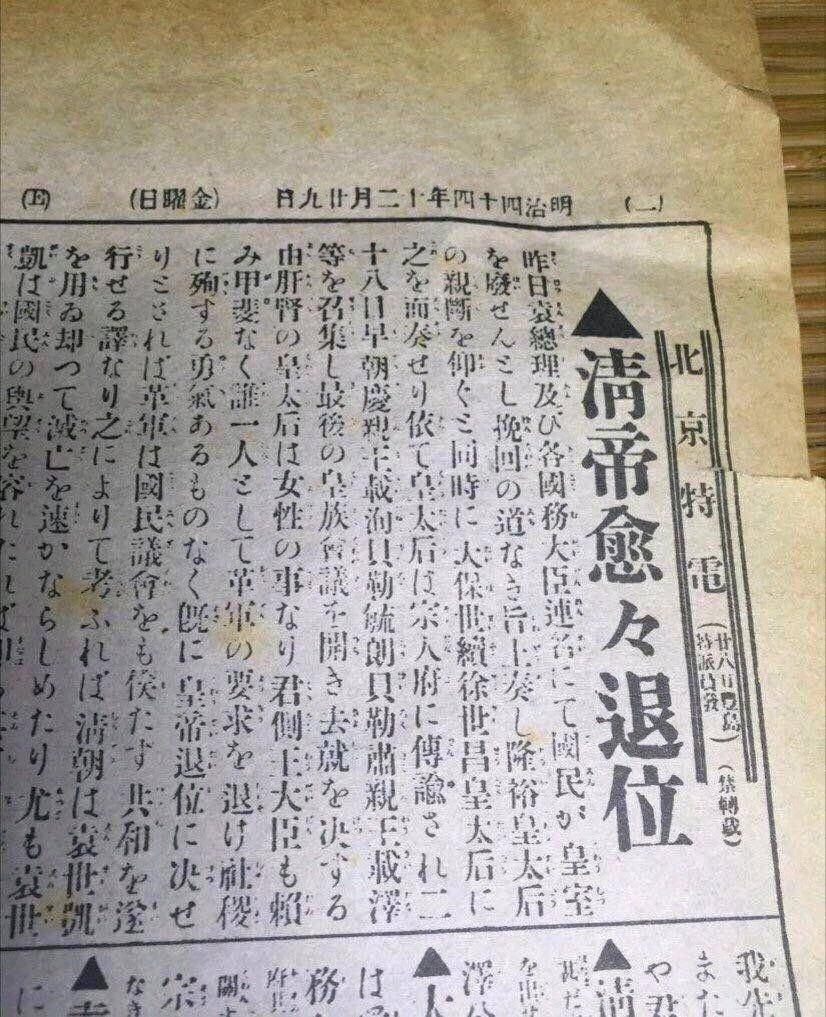 (二) 明治四十四年十二月廿九日 (金曜日) (五)
北京特電 (廿八日豊島特派員發) (禁轉載)
▲淸帝愈々退位
昨日袁總理及び各國務大臣連名にて國民が皇室
を廢せんとし挽回の道なき旨上奏し隆裕皇太后
の親斷を仰ぐと同時に大保世續徐世昌皇太后に
之を面奏せり依て皇太后は宗人府に傳諭され二
十八日早朝慶親王載洵貝勒毓朗貝勒肅親王載澤
等を召集し最後の皇族會議を開き去就を決する
由肝腎の皇太后は女性の事なり君側王大臣も賴
み甲斐なく誰一人として革軍の要求を退け社稷
に殉する勇氣あるものなく旣に皇帝退位に決せ
りとされば革軍は國民議會をも俟たす共和を遂
行せる譯なり之によりて考ふれば淸朝は袁世凱
を用ゐ却つて滅亡を速かならしめたり尤も袁世
凱は國民の輿望を容れたれば
我先
また
や君
▲淸
を
澤公
▲大
は
務
宗
なき
▲
に